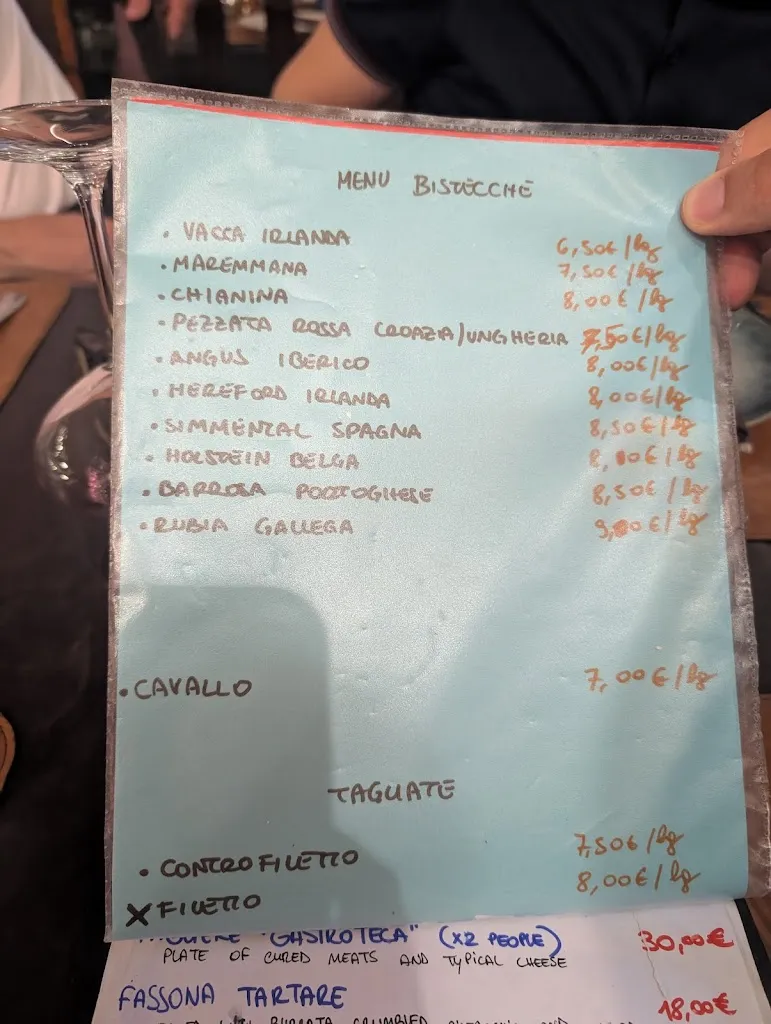 MENU BISTECCHE
• VACCA IRLANDA 6,50€/hg
• MAREMMANA 7,50€/hg
• CHIANINA 8,00€/hg
• PEZZATA ROSSA CROAZIA/UNGHERIA 7,50€/hg
• ANGUS IBERICO 8,00€/hg
• HEREFORD IRLANDA 8,00€/hg
• SIMMENTAL SPAGNA 8,50€/hg
• HOLSTEIN BELGA 8,00€/hg
• BARROSA PORTOGHESE 8,50€/hg
• RUBIA GALLEGA 9,00€/hg
• CAVALLO 7,00€/hg
TAGLIATE
• CONTROFILETTO 7,50€/hg
X FILETTO 8,00€/hg
"GASTROTECA" (X2 PEOPLE) 30,00€
PLATE OF CURED MEATS AND TYPICAL CHEESE
FASSONA TARTARE 18,00€
BURRATA CRUMBLED